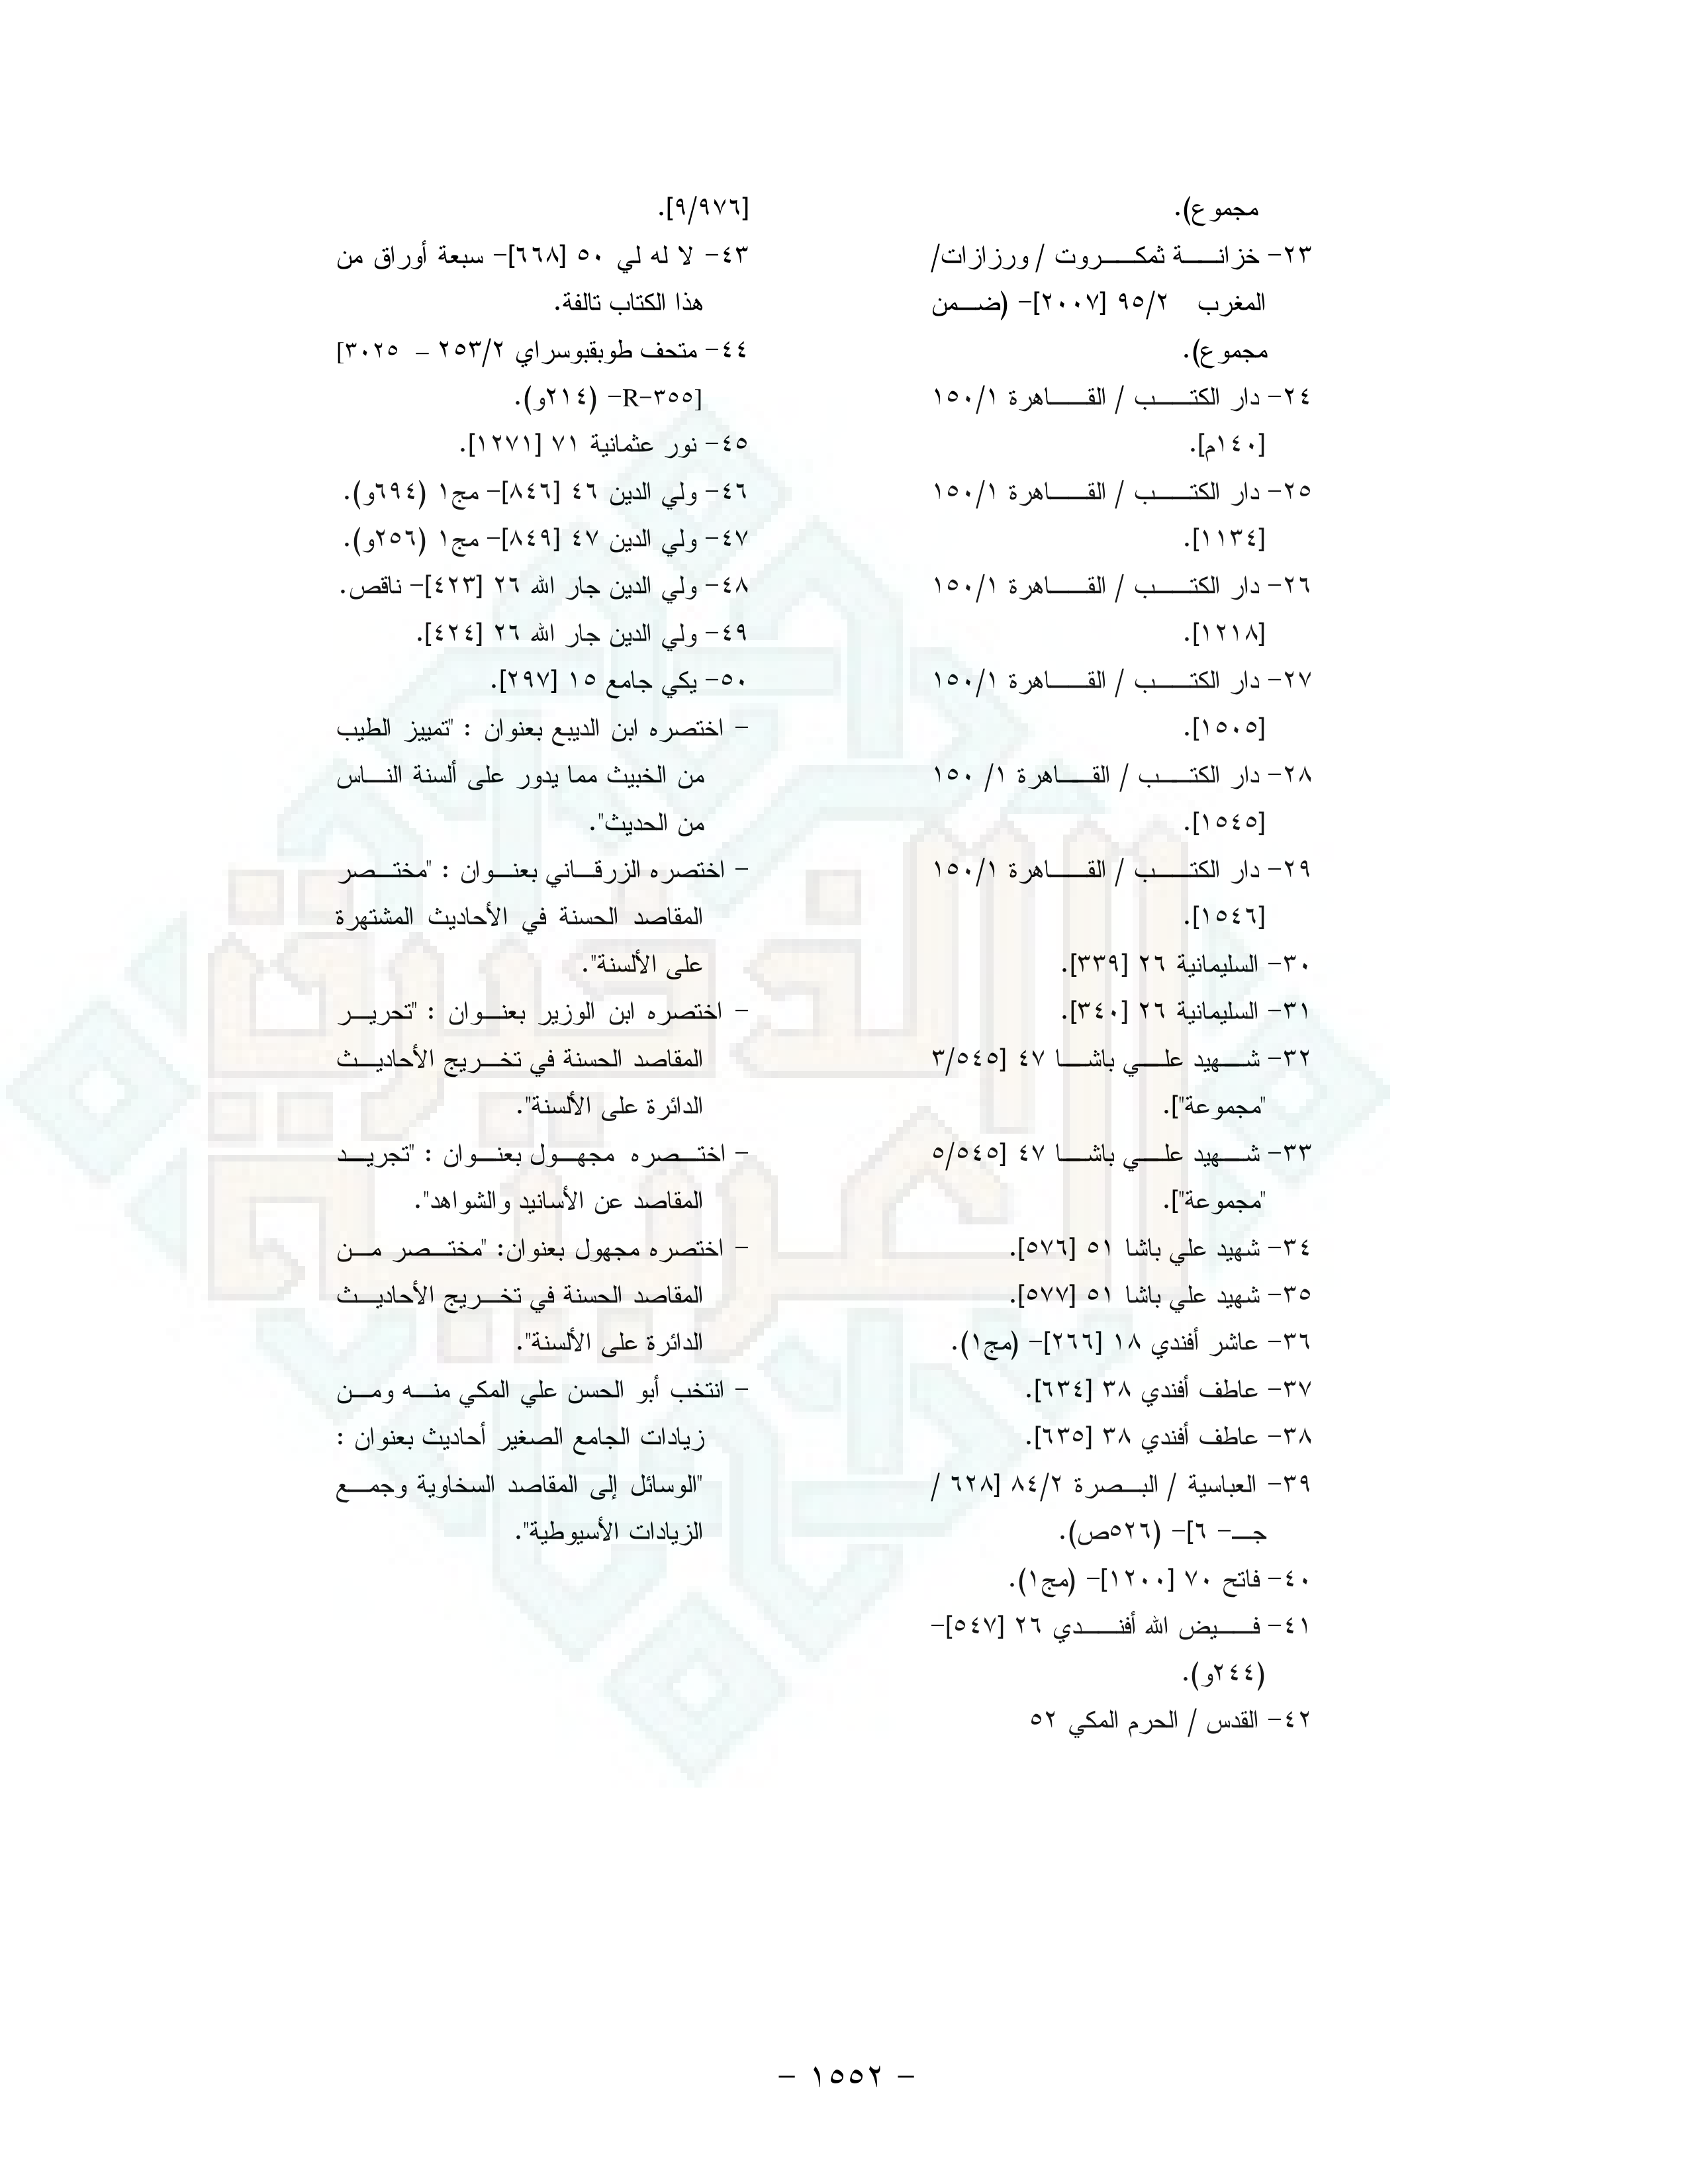 مجموع).
٢٣- خزانة ثمكروت / ورزازات/
المغرب ٩٥/٢ [٢٠٠٧]- (ضمن
مجموع).
٢٤- دار الكتب / القاهرة ١٥٠/١
[١٤٠م].
٢٥- دار الكتب / القاهرة ١٥٠/١
[١١٣٤].
٢٦- دار الكتب / القاهرة ١٥٠/١
[١٢١٨].
٢٧- دار الكتب / القاهرة ١٥٠/١
[١٥٠٥].
٢٨- دار الكتب / القاهرة ١/ ١٥٠
[١٥٤٥].
٢٩- دار الكتب / القاهرة ١٥٠/١
[١٥٤٦].
٣٠- السليمانية ٢٦ [٣٣٩].
٣١- السليمانية ٢٦ [٣٤٠].
٣٢- شهيد علي باشا ٤٧ [٣/٥٤٥
"مجموعة"].
٣٣- شهيد علي باشا ٤٧ [٥/٥٤٥
"مجموعة"].
٣٤- شهيد علي باشا ٥١ [٥٧٦].
٣٥- شهيد علي باشا ٥١ [٥٧٧].
٣٦- عاشر أفندي ١٨ [٢٦٦]- (مج١).
٣٧- عاطف أفندي ٣٨ [٦٣٤].
٣٨- عاطف أفندي ٣٨ [٦٣٥].
٣٩- العباسية / البصرة ٨٤/٢ [٦٢٨ /
جـ- ٦]- (٥٢٦ص).
٤٠- فاتح ٧٠ [١٢٠٠]- (مج١).
٤١- فيض الله أفندي ٢٦ [٥٤٧]-
(٢٤٤و).
٤٢- القدس / الحرم المكي ٥٢
[٩/٩٧٦].
٤٣- لا له لي ٥٠ [٦٦٨]- سبعة أوراق من
هذا الكتاب تالفة.
٤٤- متحف طوبقبوسراي ٢٥٣/٢ – ٣٠٢٥]
[٣٥٥-R- (٢١٤و).
٤٥- نور عثمانية ٧١ [١٢٧١].
٤٦- ولي الدين ٤٦ [٨٤٦]- مج١ (٦٩٤و).
٤٧- ولي الدين ٤٧ [٨٤٩]- مج١ (٢٥٦و).
٤٨- ولي الدين جار الله ٢٦ [٤٢٣]- ناقص.
٤٩- ولي الدين جار الله ٢٦ [٤٢٤].
٥٠- يكي جامع ١٥ [٢٩٧].
- اختصره ابن الديبع بعنوان : "تمييز الطيب
من الخبيث مما يدور على ألسنة الناس
من الحديث".
- اختصره الزرقاني بعنوان : "مختصر
المقاصد الحسنة في الأحاديث المشتهرة
على الألسنة".
- اختصره ابن الوزير بعنوان : "تحرير
المقاصد الحسنة في تخريج الأحاديث
الدائرة على الألسنة".
- اختصره مجهول بعنوان : "تجريد
المقاصد عن الأسانيد والشواهد".
- اختصره مجهول بعنوان: "مختصر من
المقاصد الحسنة في تخريج الأحاديث
الدائرة على الألسنة".
- انتخب أبو الحسن علي المكي منه ومن
زيادات الجامع الصغير أحاديث بعنوان :
"الوسائل إلى المقاصد السخاوية وجمع
الزيادات الأسيوطية".
الذخيرة
العربية
- ١٥٥٢ -